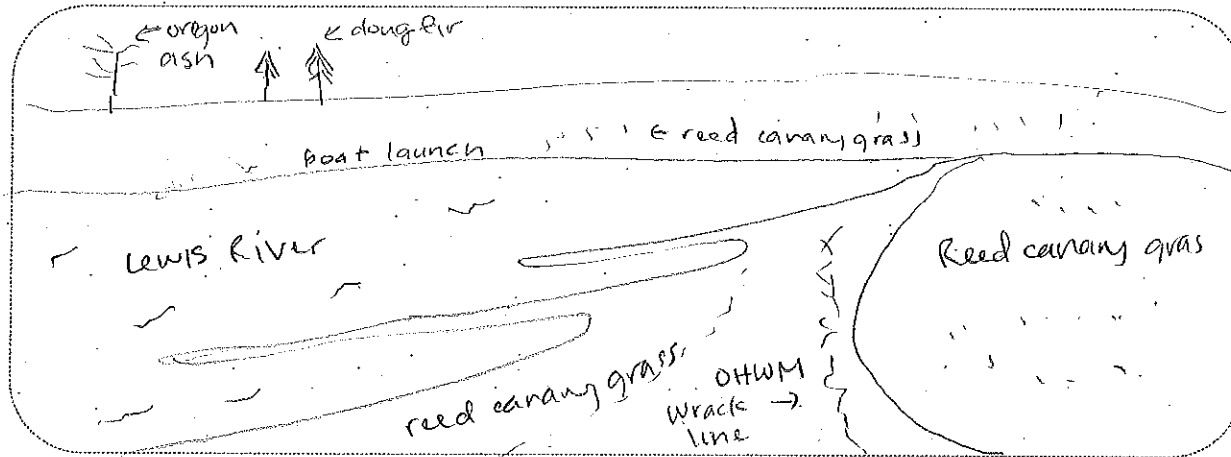 ← oregon
ash
← doug fir
Boat launch
← reed canary grass
Lewis River
Reed canary gras
reed canary grass
OHWM
Wrack →
line